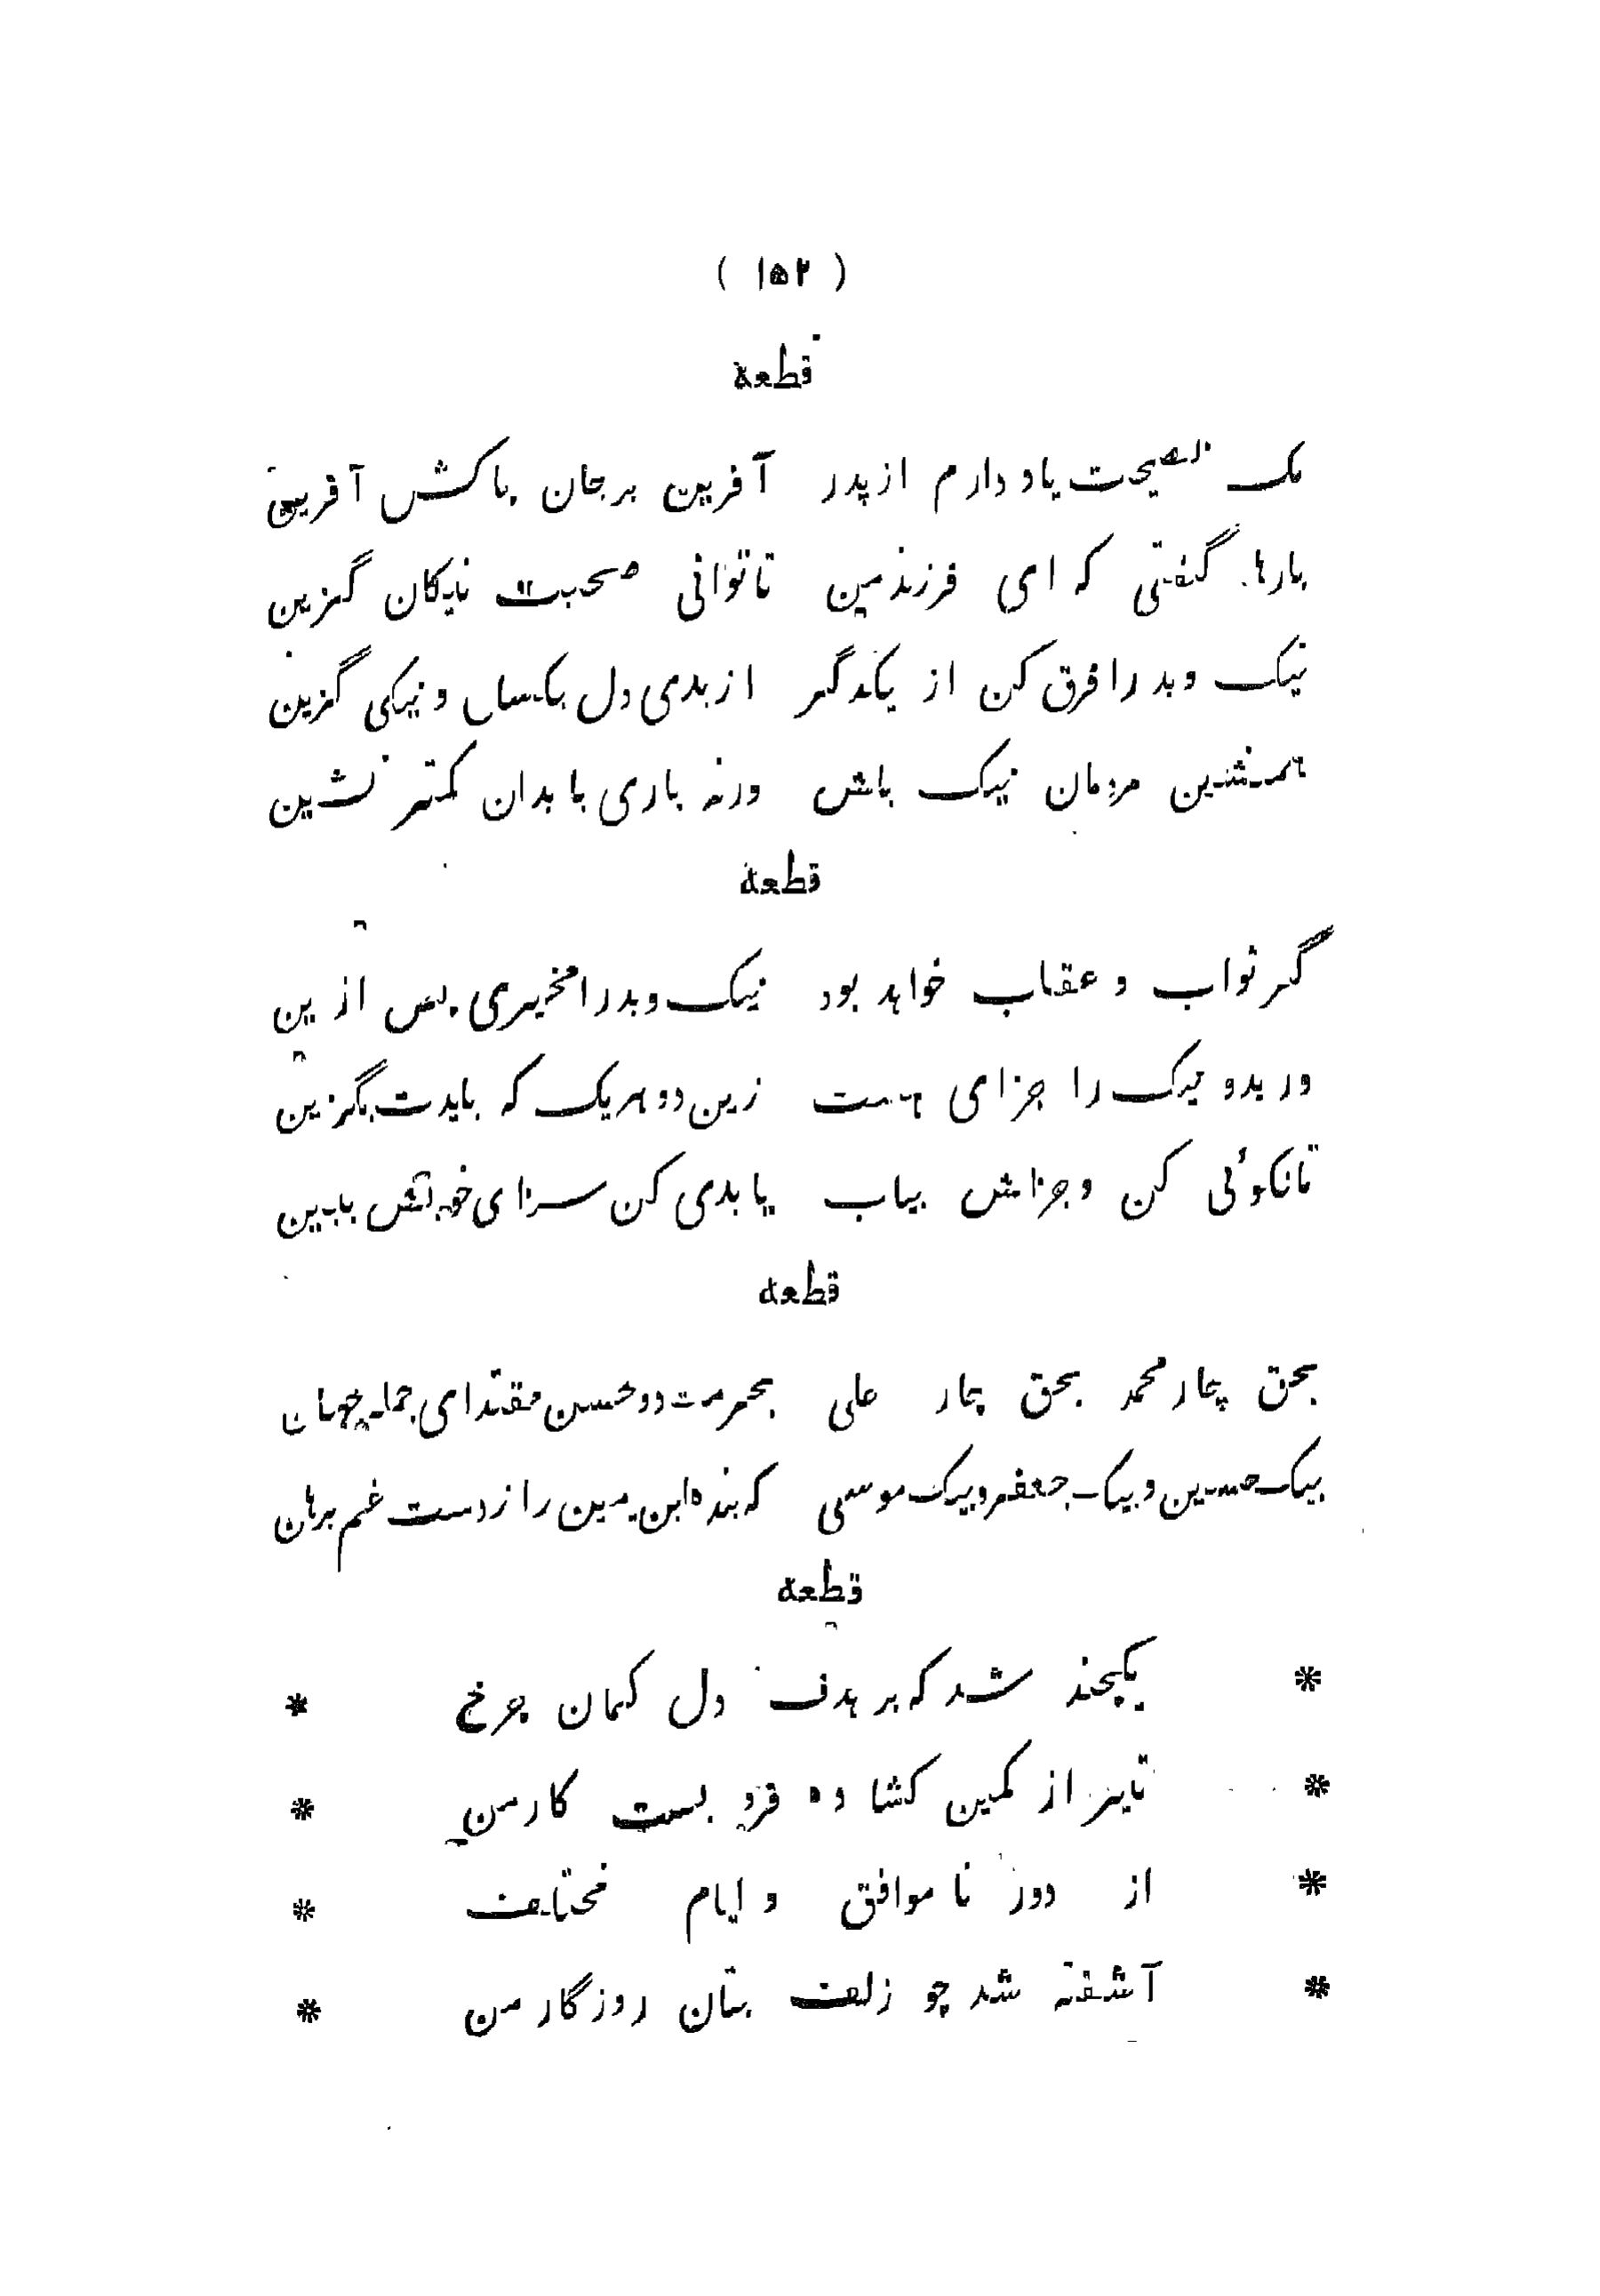 ( ۱۵۲ )
قطعة
یک نصیحت یاد دارم از پدر آفرین بر جان پاکش آفرین
بارها گفتی که ای فرزند من تا توانی صحبت نیکان گزین
نیک و بد را فرق کن از یکدگر از بدی دل بگسل و نیکی گزین
همنشین مردمان نیک باش ورنه باری با بدان کمتر نشین
قطعة
گر ثواب و عقاب خواهد بود نیک و بد را مخیری پس ازین
ور بد و نیک را جزای هست زین دو هریک که بایدت بگزین
تا نکوئی کن و جزاش بیاب یا بدی کن سزای خویش ببین
قطعة
بحق چار محمد بحق چار علی بحرمت دو حسن مقتدای جمله جهان
بیک حسین و بیک جعفر و بیک موسی که بنده ابن یمین را ز دست غم برهان
قطعة
* یکچند شد که بر هدف دل کمان چرخ *
* تا تیر از کمین کشاده فرو بست کار من *
* از دور نا موافق و ایام مختلف *
* آشفته شد چو زلف بتان روزگار من *